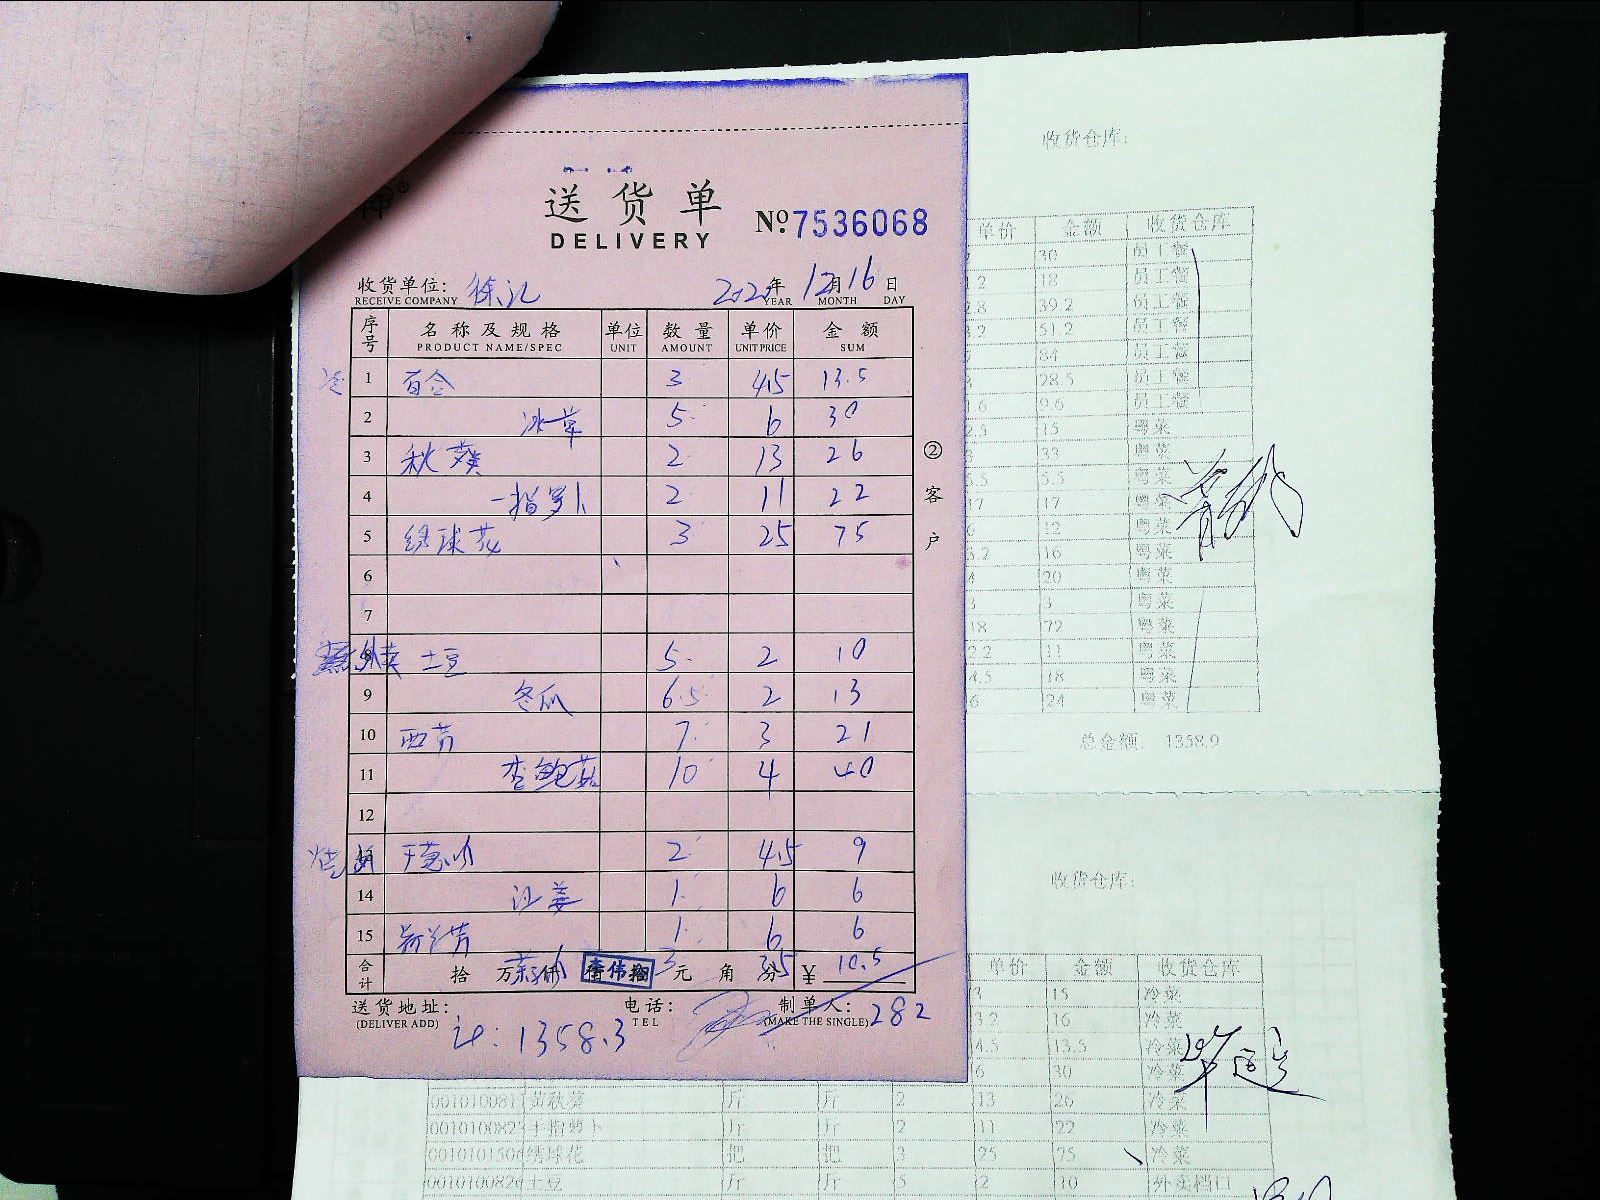 收货仓库:
送货单
DELIVERY
№ 7536068
收货单位: 徐汇 2020年 12月 16日
RECEIVE COMPANY YEAR MONTH DAY
序号 名称及规格 单位 数量 单价 金额
PRODUCT NAME/SPEC UNIT AMOUNT UNIT PRICE SUM
冷 1 百合 3 4.5 13.5
2 冰草 5 6 30
3 秋葵 2 13 26
4 一指萝卜 2 11 22
5 绣球花 3 25 75
6
7
8 外卖 土豆 5 2 10
9 冬瓜 6.5 2 13
10 西芹 7 3 21
11 杏鲍菇 10 4 40
12
干葱 2 4.5 9
14 沙姜 1 6 6
15 香芹 1 6 6
合计 拾 万 仟 李伟 3 元 角 分 3.5 ¥ 10.5
②客户
送货地址: 电话: 制单人: 282
(DELIVER ADD) TEL (MAKE THE SINGLE)
计: 1358.3
单价 金额 收货仓库
30 员工餐
18 员工餐
39.2 员工餐
51.2 员工餐
84 员工餐
28.5 员工餐
9.6 员工餐
15 粤菜
33 粤菜
5.5 粤菜
17 粤菜
12 粤菜
16 粤菜
20 粤菜
3 粤菜
72 粤菜
11 粤菜
18 粤菜
24 粤菜
总金额: 1358.9
收货仓库:
单价 金额 收货仓库
15 冷菜
3.2 16 冷菜
4.5 13.5 冷菜
6 30 冷菜
黄秋葵 斤 斤 2 13 26 冷菜
手指萝卜 斤 斤 2 11 22 冷菜
绣球花 把 把 3 25 75 冷菜
土豆 斤 斤 5 2 10 外卖档口